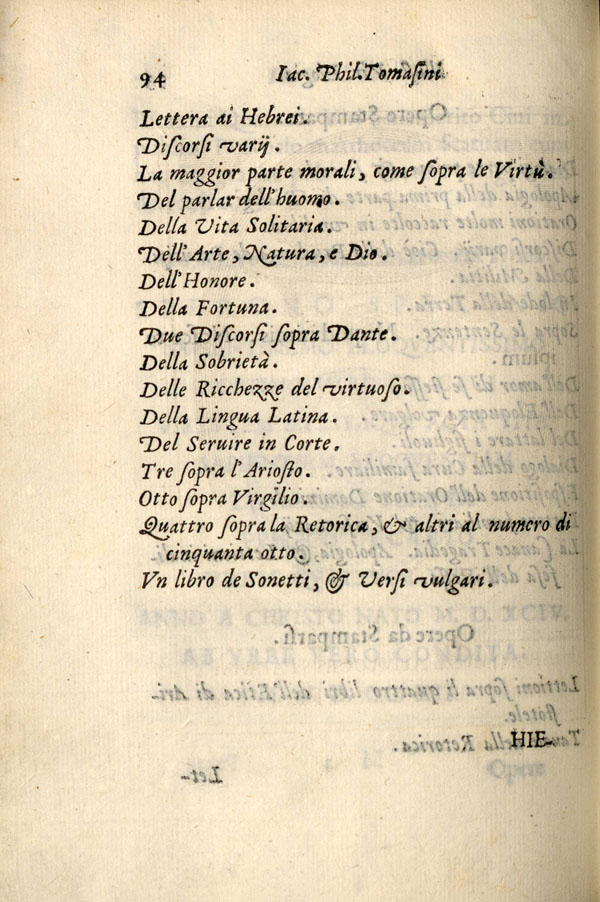 94 Iac. Phil. Tomasini
Lettera ai Hebrei.
Discorsi varij.
La maggior parte morali, come sopra le Virtù.
Del parlar dell'huomo.
Della Vita Solitaria.
Dell'Arte, Natura, e Dio.
Dell'Honore.
Della Fortuna.
Due Discorsi sopra Dante.
Della Sobrietà.
Delle Ricchezze del virtuoso.
Della Lingua Latina.
Del Seruire in Corte.
Tre sopra l'Ariosto.
Otto sopra Virgilio.
Quattro sopra la Retorica, & altri al numero di
cinquanta otto.
Vn libro de Sonetti, & Versi vulgari.
HIE-